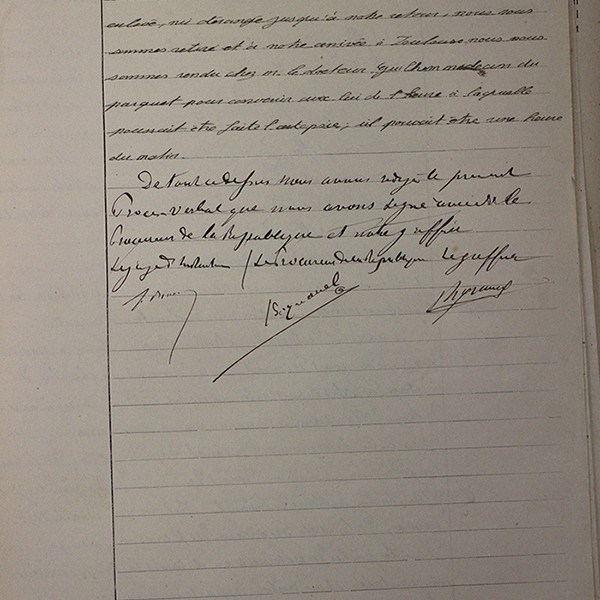 enlevé, ni dérangé jusqu'à notre retour, nous nous
sommes retiré et à notre arrivée à Toulouse nous nous
sommes rendu chez m. le docteur Guilhem medecin du
parquet pour convenir avec lui de l'heure à laquelle
pourrait être faite l'autopsie; il pouvait être une heure
du matin.
De tout ce dessus nous avons rédigé le present
Procès-Verbal que nous avons signé avec M le
Procureur de la République et notre greffier
Le juge d'Instruction / Le Procureur de la République Le greffier